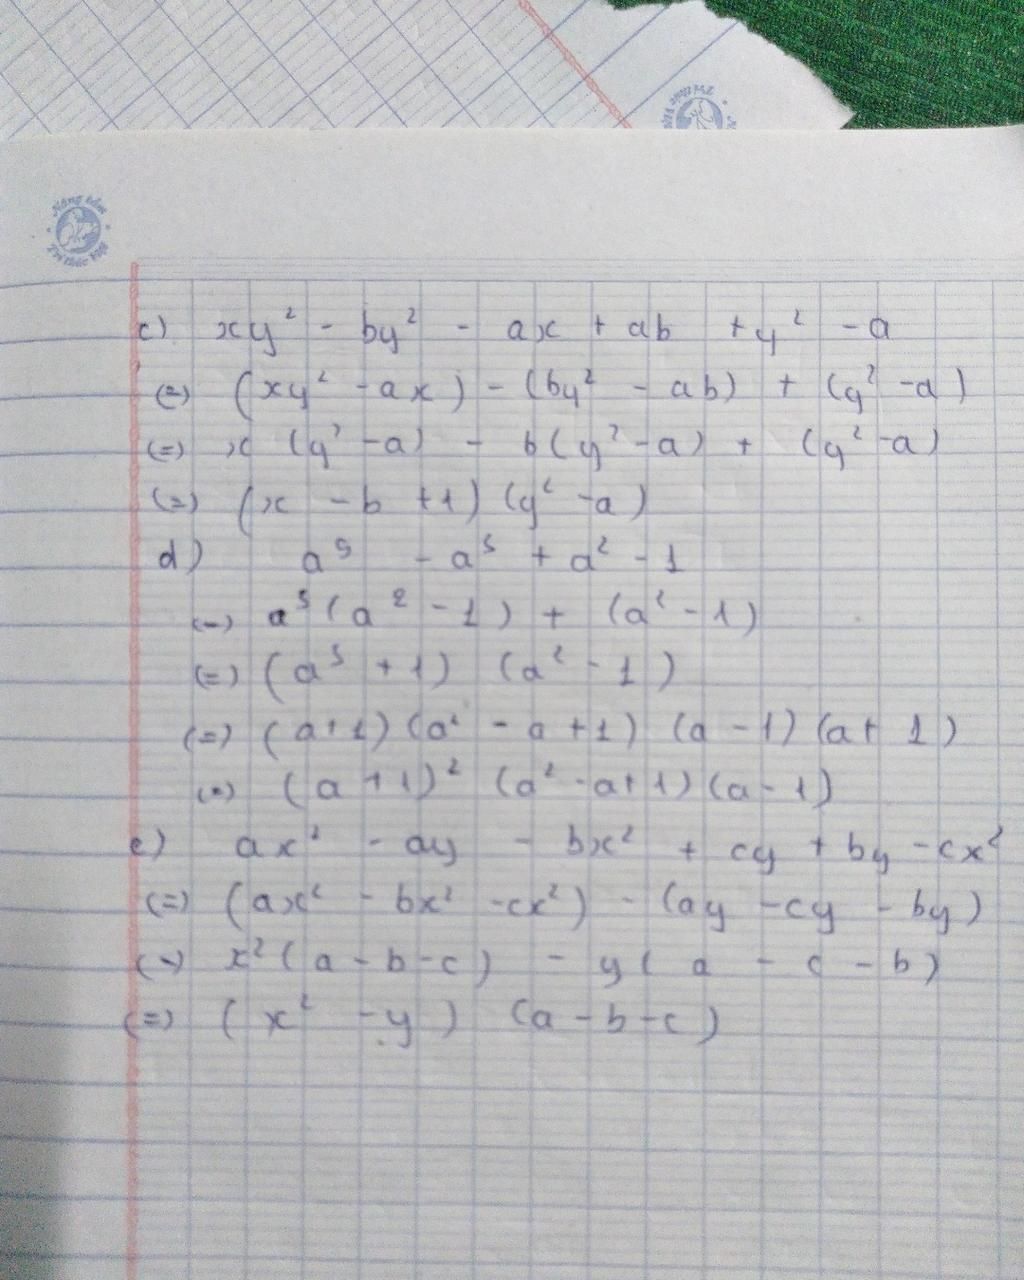 Nâng tầm
Tri thức Việt
c) xy² - by² - ax + ab + y² - a
(=) (xy² - ax) - (by² - ab) + (y² - a)
(=) x (y² - a) - b(y² - a) + (y² - a)
(=) (x - b + 1) (y² - a)
d) a⁵ - a³ + a² - 1
(=) a³(a² - 1) + (a² - 1)
(=) (a³ + 1) (a² - 1)
(=) (a+1) (a² - a + 1) (a - 1) (a + 1)
(=) (a + 1)² (a² - a + 1) (a - 1)
e) ax² - ay - bx² + cy + by - cx²
(=) (ax² - bx² - cx²) - (ay - cy - by)
(=) x² (a - b - c) - y (a - c - b)
(=) (x² - y) (a - b - c)